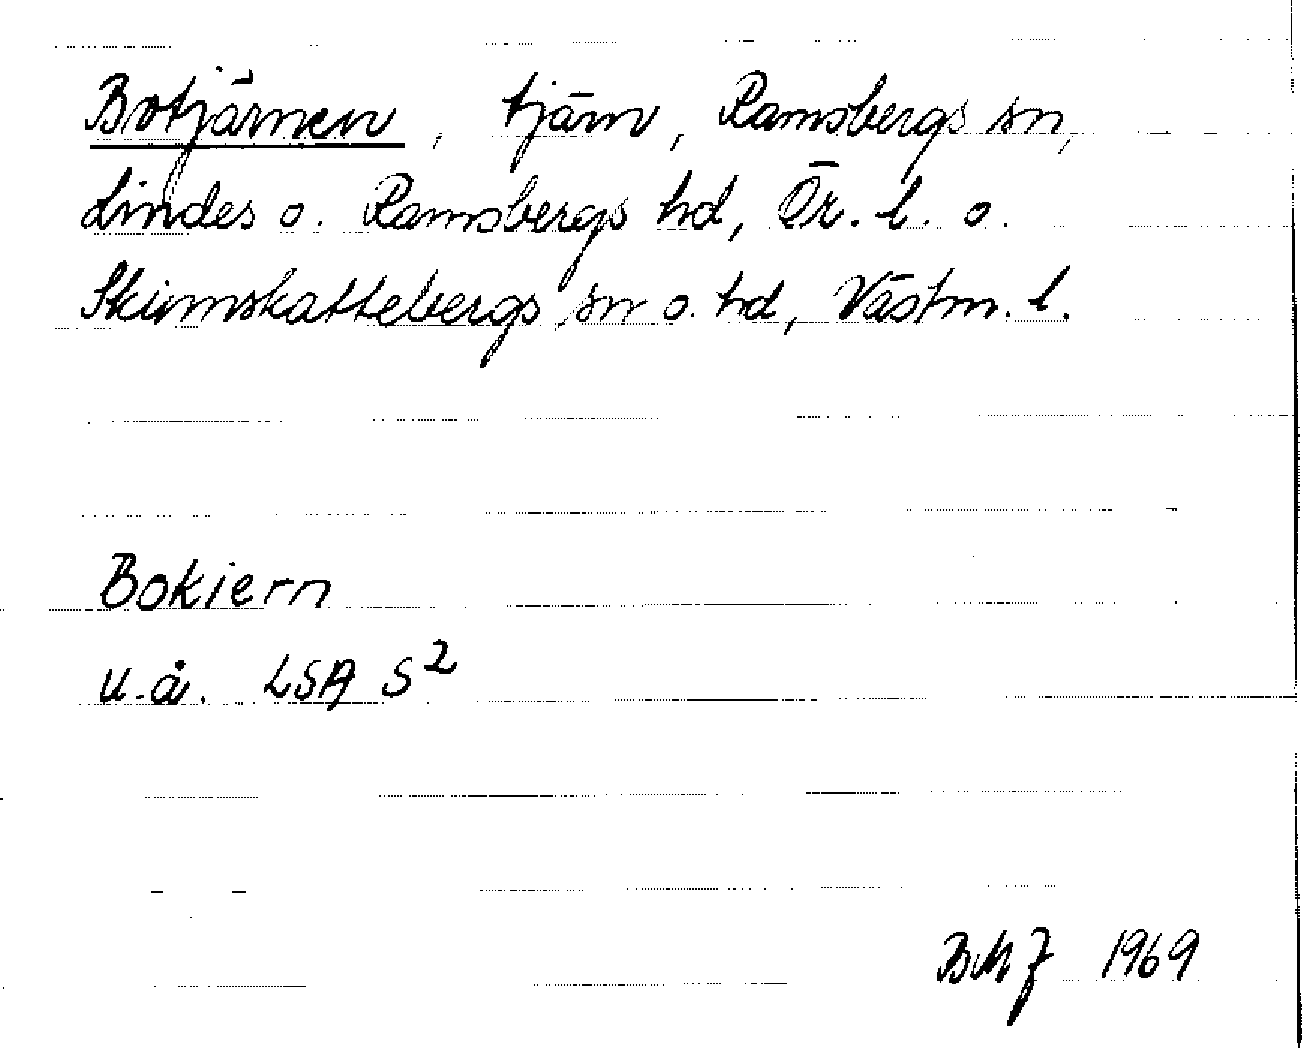 Botjärnen, tjärn, Ramsbergs sn,
Lindes o. Ramsbergs hd, Ör. l. o.
Skinnskattebergs sn o. hd, Västm. l.
Bokiern
u.å. LSA S²
BMJ 1969